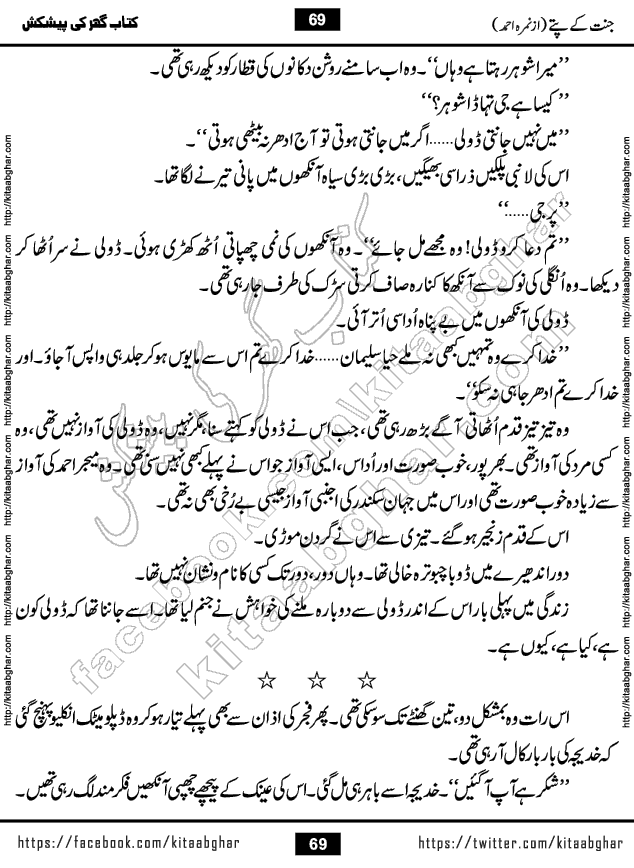 جنت کے پتے (از نمرہ احمد)
69
کتاب گھر کی پیشکش
’’میرا شوہر رہتا ہے وہاں‘‘۔ وہ اب سامنے روشن دکانوں کی قطار کو دیکھ رہی تھی۔
’’ کیسا ہے جی تہاڈا شوہر؟‘‘
’’میں نہیں جانتی ڈولی......اگر میں جانتی ہوتی تو آج ادھر نہ بیٹھی ہوتی‘‘۔
اس کی لانبی پلکیں ذرا سی بھیگیں، بڑی بڑی سیاہ آنکھوں میں پانی تیرنے لگا تھا۔
’’پر جی......‘‘
’’تم دعا کرو ڈولی! وہ مجھے مل جائے‘‘۔ وہ آنکھوں کی نمی چھپاتی اُٹھ کھڑی ہوئی۔ ڈولی نے سر اُٹھا کر
دیکھا۔ وہ اُنگلی کی نوک سے آنکھ کا کنارہ صاف کرتی سڑک کی طرف جا رہی تھی۔
ڈولی کی آنکھوں میں بے پناہ اُداسی اُتر آئی۔
’’خدا کرے وہ تمہیں کبھی نہ ملے حیا سلیمان......خدا کرے تم اس سے مایوس ہو کر جلد ہی واپس آ جاؤ۔ اور
خدا کرے تم ادھر جا ہی نہ سکو‘‘۔
وہ تیز تیز قدم اُٹھاتی آگے بڑھ رہی تھی، جب اس نے ڈولی کو کہتے سنا، مگر نہیں، وہ ڈولی کی آواز نہیں تھی، وہ
کسی مرد کی آواز تھی۔ بھرپور، خوب صورت اور اُداس، ایسی آواز جو اس نے پہلے کبھی نہیں سنی تھی۔ وہ میجر احمد کی آواز
سے زیادہ خوب صورت تھی اور اس میں جہان سکندر کی اجنبی آواز جیسی بے رُخی بھی نہ تھی۔
اس کے قدم زنجیر ہو گئے۔ تیزی سے اس نے گردن موڑی۔
دور اندھیرے میں ڈوبا چبوترہ خالی تھا۔ وہاں دور، دور تک کسی کا نام و نشان نہیں تھا۔
زندگی میں پہلی بار اس کے اندر ڈولی سے دوبارہ ملنے کی خواہش نے جنم لیا تھا۔ اسے جاننا تھا کہ ڈولی کون
ہے، کیا ہے، کیوں ہے۔
☆ ☆ ☆
اس رات وہ بمشکل دو، تین گھنٹے تک سو سکی تھی۔ پھر فجر کی اذان سے بھی پہلے تیار ہو کر وہ ڈپلومیٹک انکلیو پہنچ گئی
کہ خدیجہ کی بار بار کال آ رہی تھی۔
’’شکر ہے آپ آ گئیں‘‘۔ خدیجہ اسے باہر ہی مل گئی۔ اس کی عینک کے پیچھے چھپی آنکھیں فکر مند لگ رہی تھیں۔
http://kitaabghar.com http://kitaabghar.com http://kitaabghar.com http://kitaabghar.com http://kitaabghar.com http://kitaabghar.com
http://kitaabghar.com http://kitaabghar.com http://kitaabghar.com http://kitaabghar.com http://kitaabghar.com http://kitaabghar.com
کتاب گھر کی پیشکش
kitaabghar.com
https://facebook.com/kitaabghar
69
https://twitter.com/kitaabghar